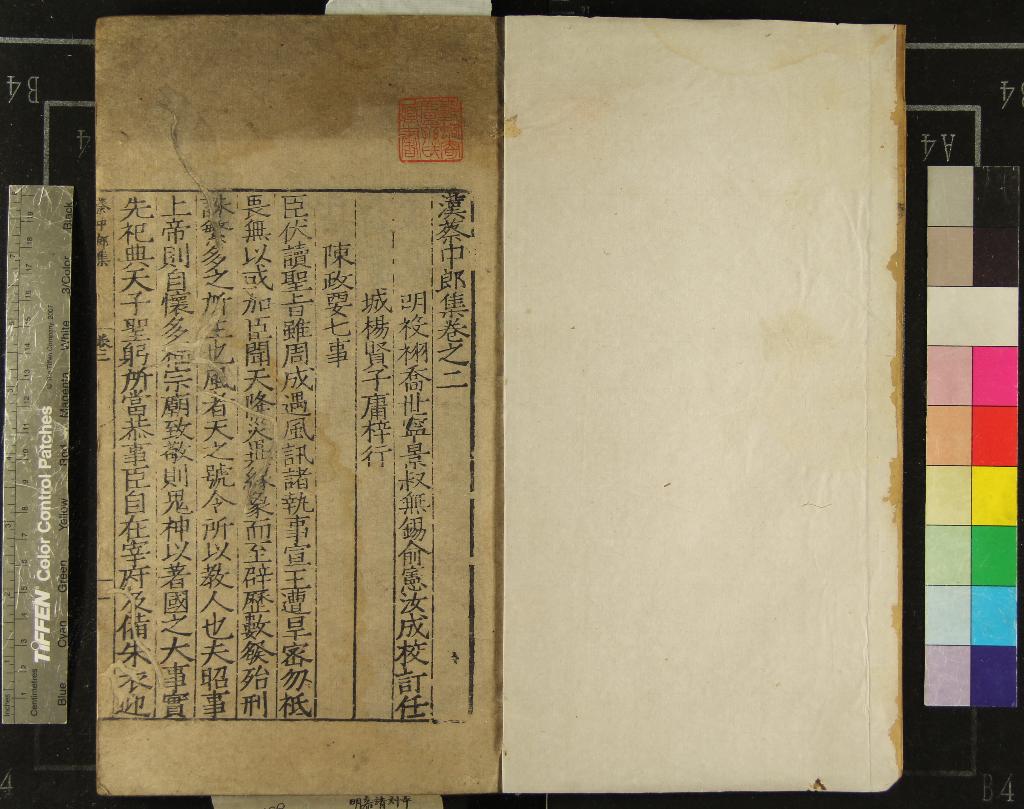 漢蔡中郎集卷之二
明校栩喬世寧景叔無錫俞憲汝成校訂任
城楊賢子庸梓行
陳政要七事
臣伏讀聖旨雖周成遇風訊諸執事宣王遭旱密勿祗
畏無以或加臣聞天降災異緣象而至辟歷數發殆刑
誅繁多之所生也風者天之號令所以教人也夫昭事
上帝則自懷多福宗廟致敬則鬼神以著國之大事實
先祀典天子聖躬所當恭事臣自在宰府及備朱衣迎
蔡中郎集
卷二
一
TIFFEN Color Control Patches
© The Tiffen Company, 2007
Inches
Centimetres
Blue
Cyan
Green
Yellow
Red
Magenta
White
3/Color
Black
B4
A4
B4